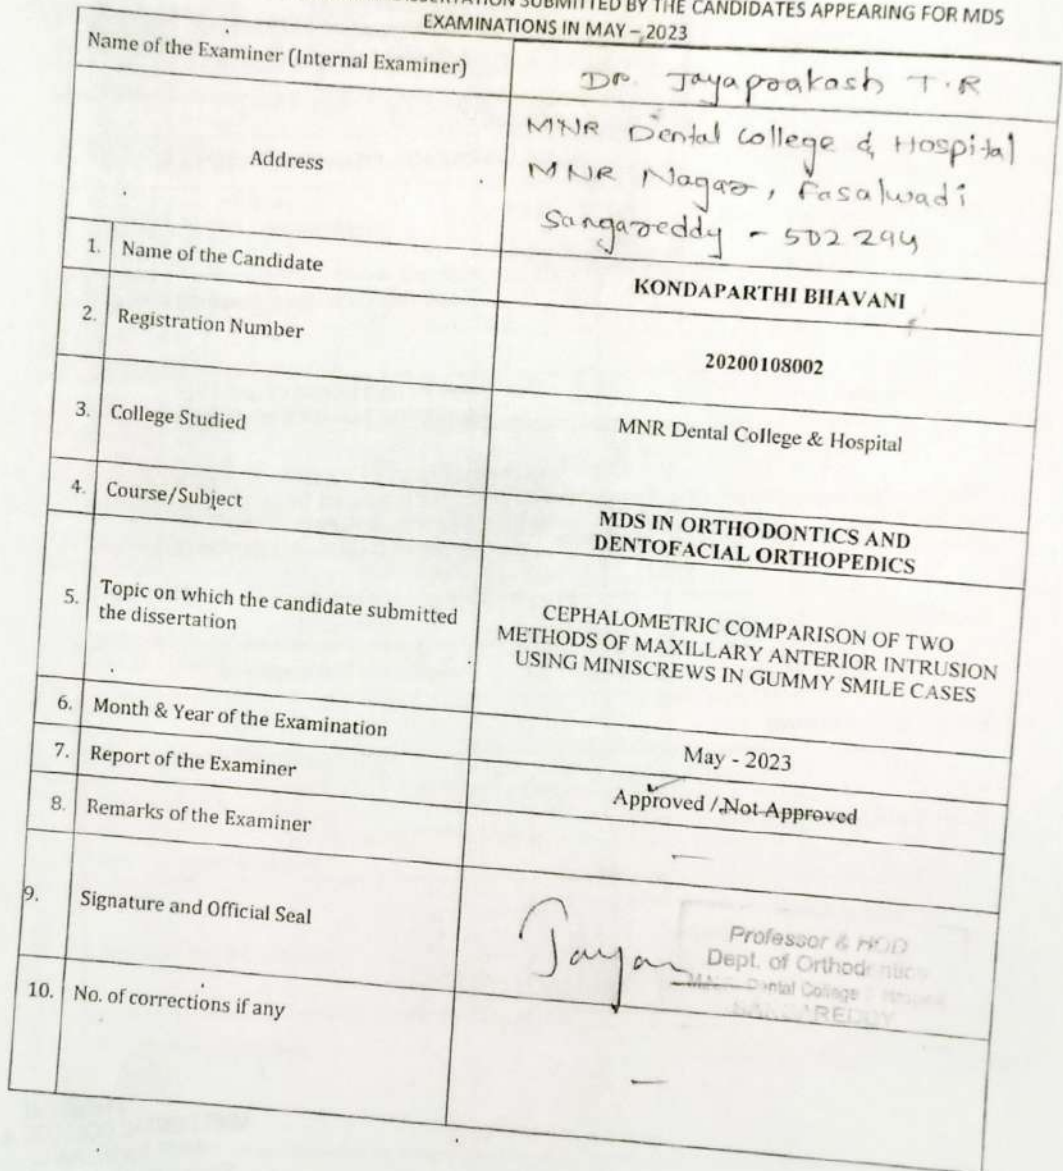 SUBMITTED BY THE CANDIDATES APPEARING FOR MDS
EXAMINATIONS IN MAY – 2023
Name of the Examiner (Internal Examiner)
Dr. Jayaprakash T.R
Address
MNR Dental College & Hospital
MNR Nagar, Fasalwadi
Sangareddy - 502 294
1. Name of the Candidate
KONDAPARTHI BHAVANI
2. Registration Number
20200108002
3. College Studied
MNR Dental College & Hospital
4. Course/Subject
MDS IN ORTHODONTICS AND
DENTOFACIAL ORTHOPEDICS
5. Topic on which the candidate submitted
the dissertation
CEPHALOMETRIC COMPARISON OF TWO
METHODS OF MAXILLARY ANTERIOR INTRUSION
USING MINISCREWS IN GUMMY SMILE CASES
6. Month & Year of the Examination
May - 2023
7. Report of the Examiner
Approved / Not Approved
8. Remarks of the Examiner
—
9. Signature and Official Seal
Jayan
Professor & HOD
Dept. of Orthodontics
Dental College
10. No. of corrections if any
—